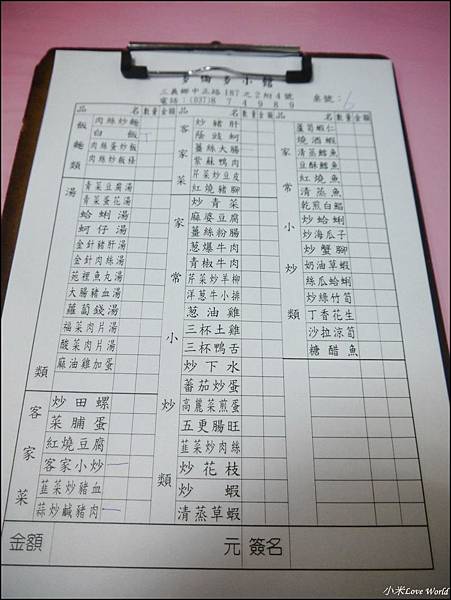 小館
三義鄉中正路187之2附4號
電話：(037)874989 桌號：6
品名 數量 金額 品名 數量 金額 品名 數量 金額
飯麵類
肉絲炒麵
白飯
肉絲蛋炒飯
肉絲炒粄條
湯類
青菜豆腐湯
青菜蛋花湯
蛤蜊湯
蚵仔湯
金針豬肝湯
金針肉絲湯
苑裡魚丸湯
大腸豬血湯
蘿蔔錢湯
福菜肉片湯
酸菜肉片湯
麻油雞加蛋
客家菜
炒田螺
菜脯蛋
紅燒豆腐
客家小炒
韮菜炒豬血
蒜炒鹹豬肉
客家菜
炒豬肝
蔭豉蚵
薑絲大腸
紫蘇鴨肉
芹菜炒豆皮
紅燒豬腳
家常小炒類
炒青菜
麻婆豆腐
薑絲粉腸
蔥爆牛肉
青椒牛肉
芹菜炒羊柳
洋蔥牛小排
蔥油雞
三杯土雞
三杯鴨舌
炒下水
蕃茄炒蛋
高麗菜煎蛋
五更腸旺
韮菜炒肉絲
炒花枝
炒蝦
清蒸草蝦
家常小炒類
蘆筍蝦仁
燒酒蝦
清蒸鱈魚
豆酥鱈魚
紅燒魚
清蒸魚
乾煎白鯧
炒蛤蜊
炒海瓜子
炒蟹腳
奶油草蝦
絲瓜蛤蜊
炒綠竹筍
丁香花生
沙拉涼筍
糖醋魚
金額 元 簽名
小米Love World